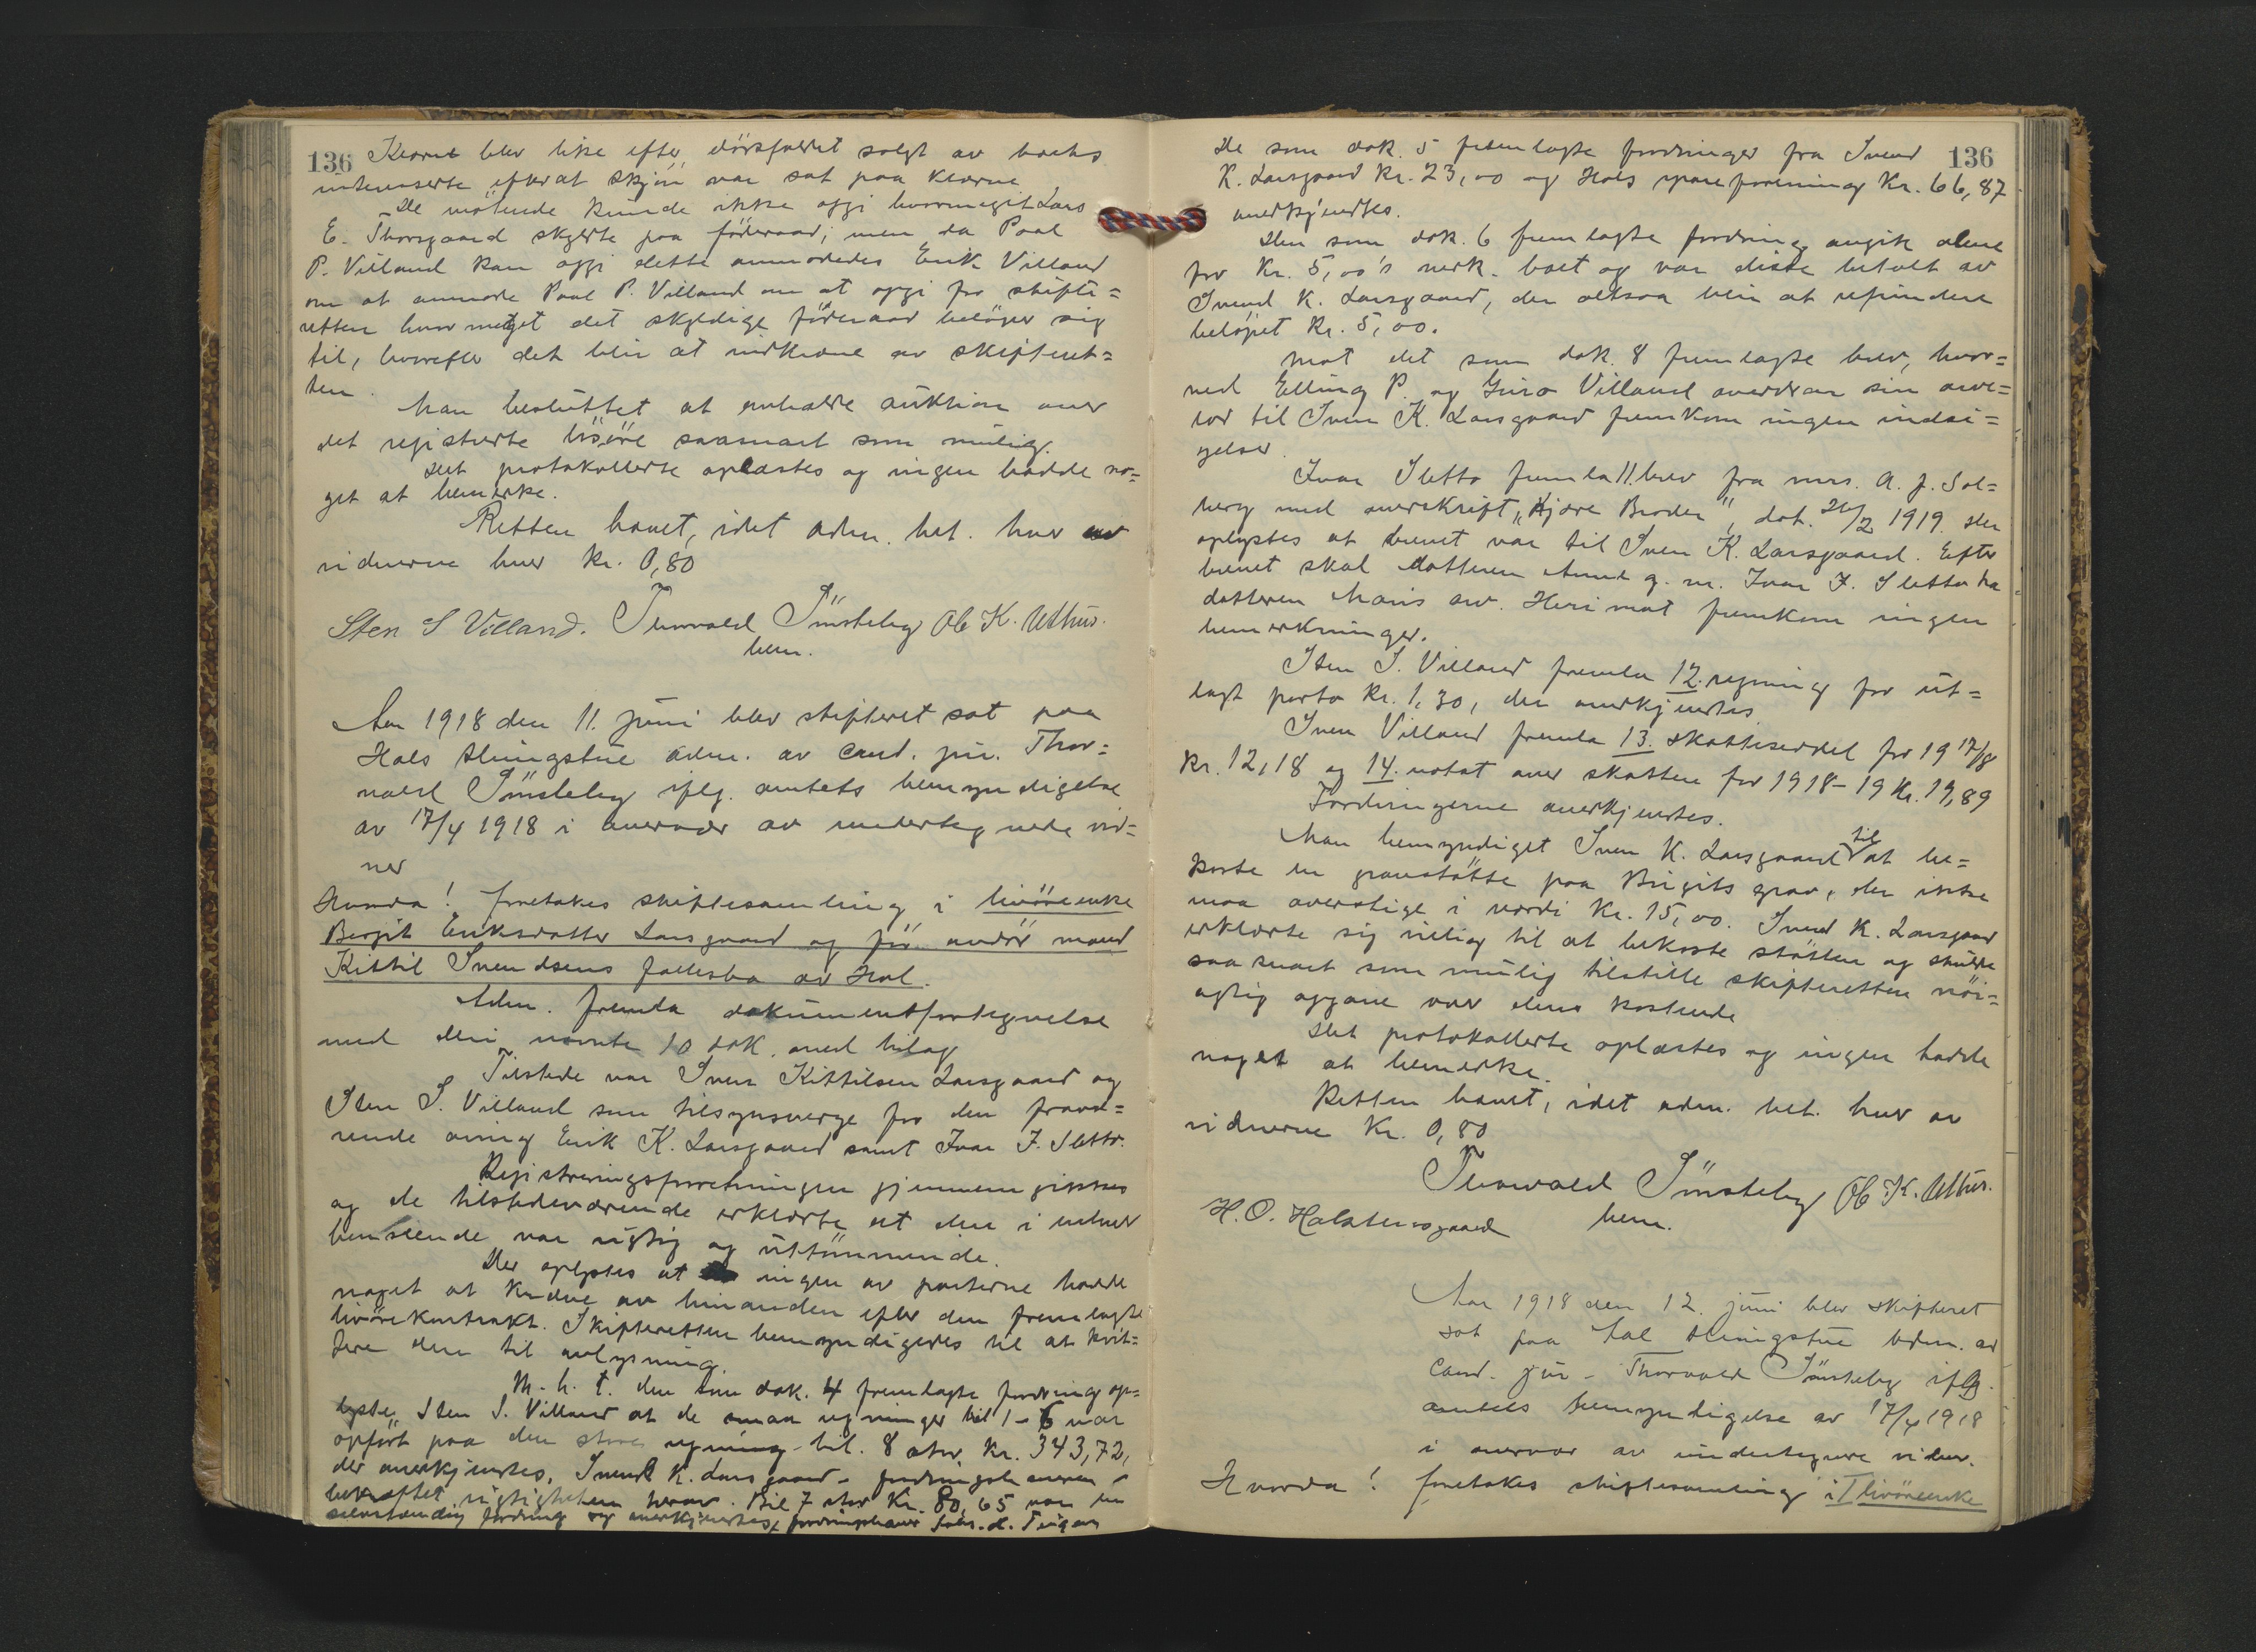 136
Klærne blev like efter dødsfaldet solgt av boets
interesserte efterat skjøn var sat paa klærne
De møtende kunde ikke opgi hvormeget Lars
E. Thorsgaard skyldte paa føderaad; men da Paal
P. Villand kan opgi dette anmodedes Erik Villand
om at anmode Paal P. Villand om at opgi for skifte=
retten hvor meget det skyldige føderaad beløper sig
til, hvorefter det blir at indkræve av skifteret=
ten.
Man besluttet at avholde auktion over
det registrerte løsøre saasnart som mulig.
Det protokollerte oplæstes og ingen hadde no=
get at bemerke.
Retten hævet, idet adm. bet. hver av
vidnerne hver kr. 0,80
Sten S Villand. Thorvald Sünsteby Ob K. Uthus.
bem.
Aar 1918 den 11. juni blev skifteret sat paa
Hols tingstue adm. av cand. jur. Thor=
vald Sünsteby iflg. amtets bemyndigelse
av 17/4 1918 i overvær av undertegnede vid=
ner
Hvorda! foretokes skiftesamling i livøreenke
Bergit Eriksdatter Larsgaard og før avdød mand
Kittil Svendsens fællesbo av Hol.
Adm. fremla dokumentfortegnelse
med de i nævnte 10 dok. med bilag
Tilstede var Sven Kittilsen Larsgaard og
Sten S. Villand som tilsynsverge for den fravæ=
rende arving Erik K. Larsgaard samt Ivar I. Sletto.
Registreringsforretningen gjennemgikkes
og de tilstedeværende erklærte at den i enhver
henseende var rigtig og uttømmende.
Der oplystes at ingen av parterne hadde
noget at kræve av hinanden efter den fremlagte
livørekontrakt. Skifteretten bemyndigedes til at kvit=
tere den til avlysning.
M. h. t. den som dok. 4 fremlagte fordring op=
lyste Sten S. Villand at de smaa regninger bil 1-6 var
opført paa den store regning - bil. 8 stor kr. 343,72,
der anerkjendtes. Svend K. Larsgaard - fordringshaveren -
bekræftet rigtigheten herav. Bil 7 stor Kr. 80,65 var en
selvstændig fordring og anerkjendtes, fordringshaver
136
De som dok. 5 fremlagte fordringer fra Svend
K. Larsgaard kr. 23,00 og Hols spareforening Kr. 66,87
anerkjendtes.
Den som dok. 6 fremlagte fordring angik alene
for Kr. 5,00's verk. boet og var disse betalt av
Svend K. Larsgaard, der altsaa blir at refundere
beløpet kr. 5,00.
Mot det som dok. 8 fremlagte brev, hvor=
ved Elling P. og Guro Villand overdrar sin arve=
lod til Sven K. Larsgaard fremkom ingen indsi=
gelser.
Ivar Sletto fremla 11. brev fra mrs. A. J. Sol=
berg med overskrift „Kjære Broder", dat. 26/2 1919. Der
oplystes at brevet var til Sven K. Larsgaard. Efter
brevet skal datteren Anne g. m. Ivar I. Sletto ha
datteren Maris arv. Herimot fremkom ingen
bemerkninger.
Sten S. Villand fremla 12. regning for ut=
lagt porto kr. 1,30, der anerkjendtes
Sven Villand fremla 13. skatteseddel for 1917/18
kr. 12,18 og 14. notat over skatten for 1918-19 Kr. 19,89
Fordringerne anerkjendtes.
Man bemyndiget Sven K. Larsgaard til at be=
koste en gravstøtte paa Birgits grav, der ikke
maa overstige i værdi Kr. 15,00. Svend K. Larsgaard
erklærte sig villig til at bekoste støtten og skulde
saa snart som mulig tilstille skifteretten nøi=
agtig opgave over dens kostende
Det protokollerte oplæstes og ingen hadde
noget at bemerke.
Retten hævet, idet adm. bet. hver av
vidnerne Kr. 0,80
Thorvald Sünsteby Ob K. Uthus.
H. O. Halstensgaard bem.
Aar 1918 den 12. juni blev skifteret
sat paa Hol tingstue adm. av
cand. jur. Thorvald Sünsteby iflg.
amtets bemyndigelse av 17/4 1918
i overvær av undertegnede vidner.
Hvorda! foretokes skiftesamling i livøreenke